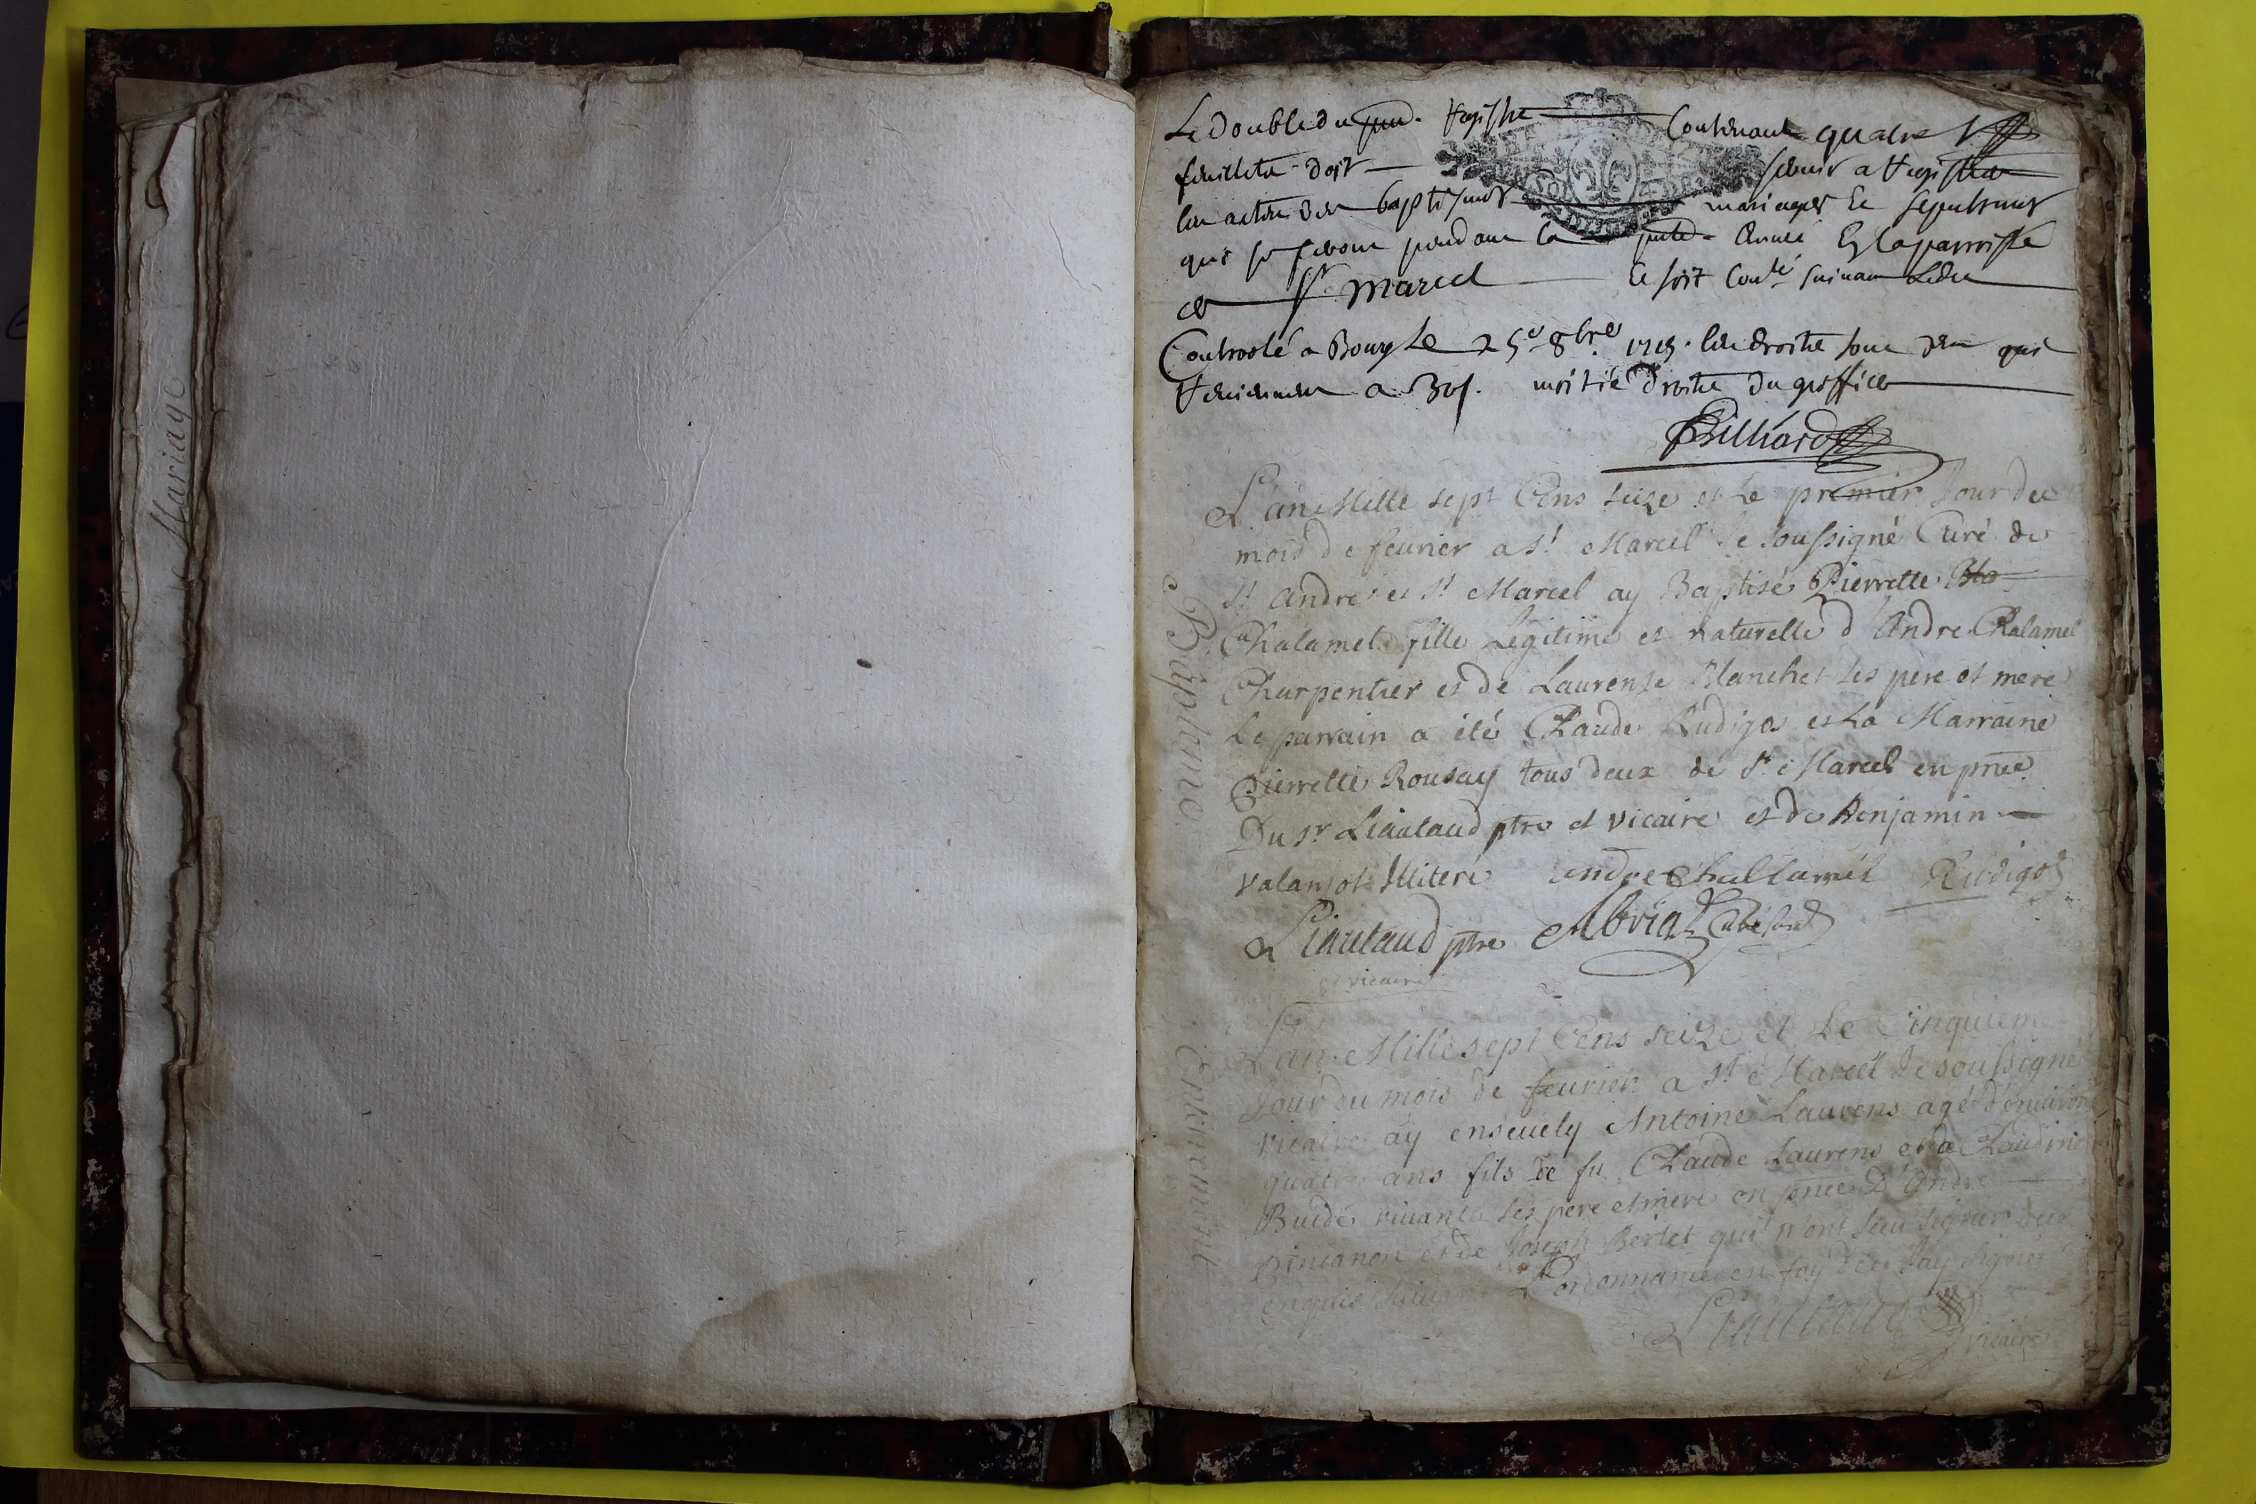 Mariage
Le double du pnt. Registre Contenant quatre
feuillets doit servir a registrer
les actes des baptesmes mariages et sepultures
qui se feront pendant la pnte. année En la parroisse
de St. Marcel Ce soit Conté suivant Ledit
Controolé a Bourg Le 25e 8bre 1715. les droits sont deu qui
reviennent a 30s. moitié droits du greffier
Billiard
Baptême
L'an Mille sept Cens seize et Le premier Jour du
mois de feurier a St. Marcel Je soussigné Curé de
St. André et St. Marcel ay Baptisé Pierrette Bla
Chalamel fille Legitime et naturelle d'André Chalamel
Charpentier et de Laurense Blanchet ses père et mere
Le parrain a été Claude Rudigos et La Marraine
Pierrette Rousay tous deux de St. Marcel en pnce
Du Sr Liautaud ptre et vicaire et de Benjamin
valansot Illiteré andre Challamel Rudigos
Liautaud ptre Abrial Curé
et vicaire
Enterrement
L'an Mille sept Cens seize et Le Cinquieme
Jour du mois de feurier a St. Marcel Je soussigné
vicaire ay enseuely Antoine Laurens agé d'enuiron
quatre ans fils de fu Claude Laurens et de Claudine
Buidé viuante ses pere et mere en pnce d'André
et de Joseph Berlet qui n'ont sceu signer de ce
enquis suivant L'ordonnance en foy de ce J'ay signé
Liautaud
vicaire